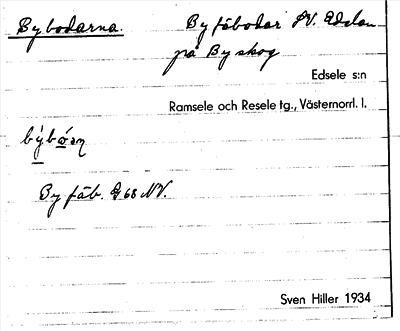 Bybodarna. By fäbodar NV. Edslan
på By skog
Edsele s:n
Ramsele och Resele tg., Västernorrl. l.
By fäb. G 68 NV.
Sven Hiller 1934